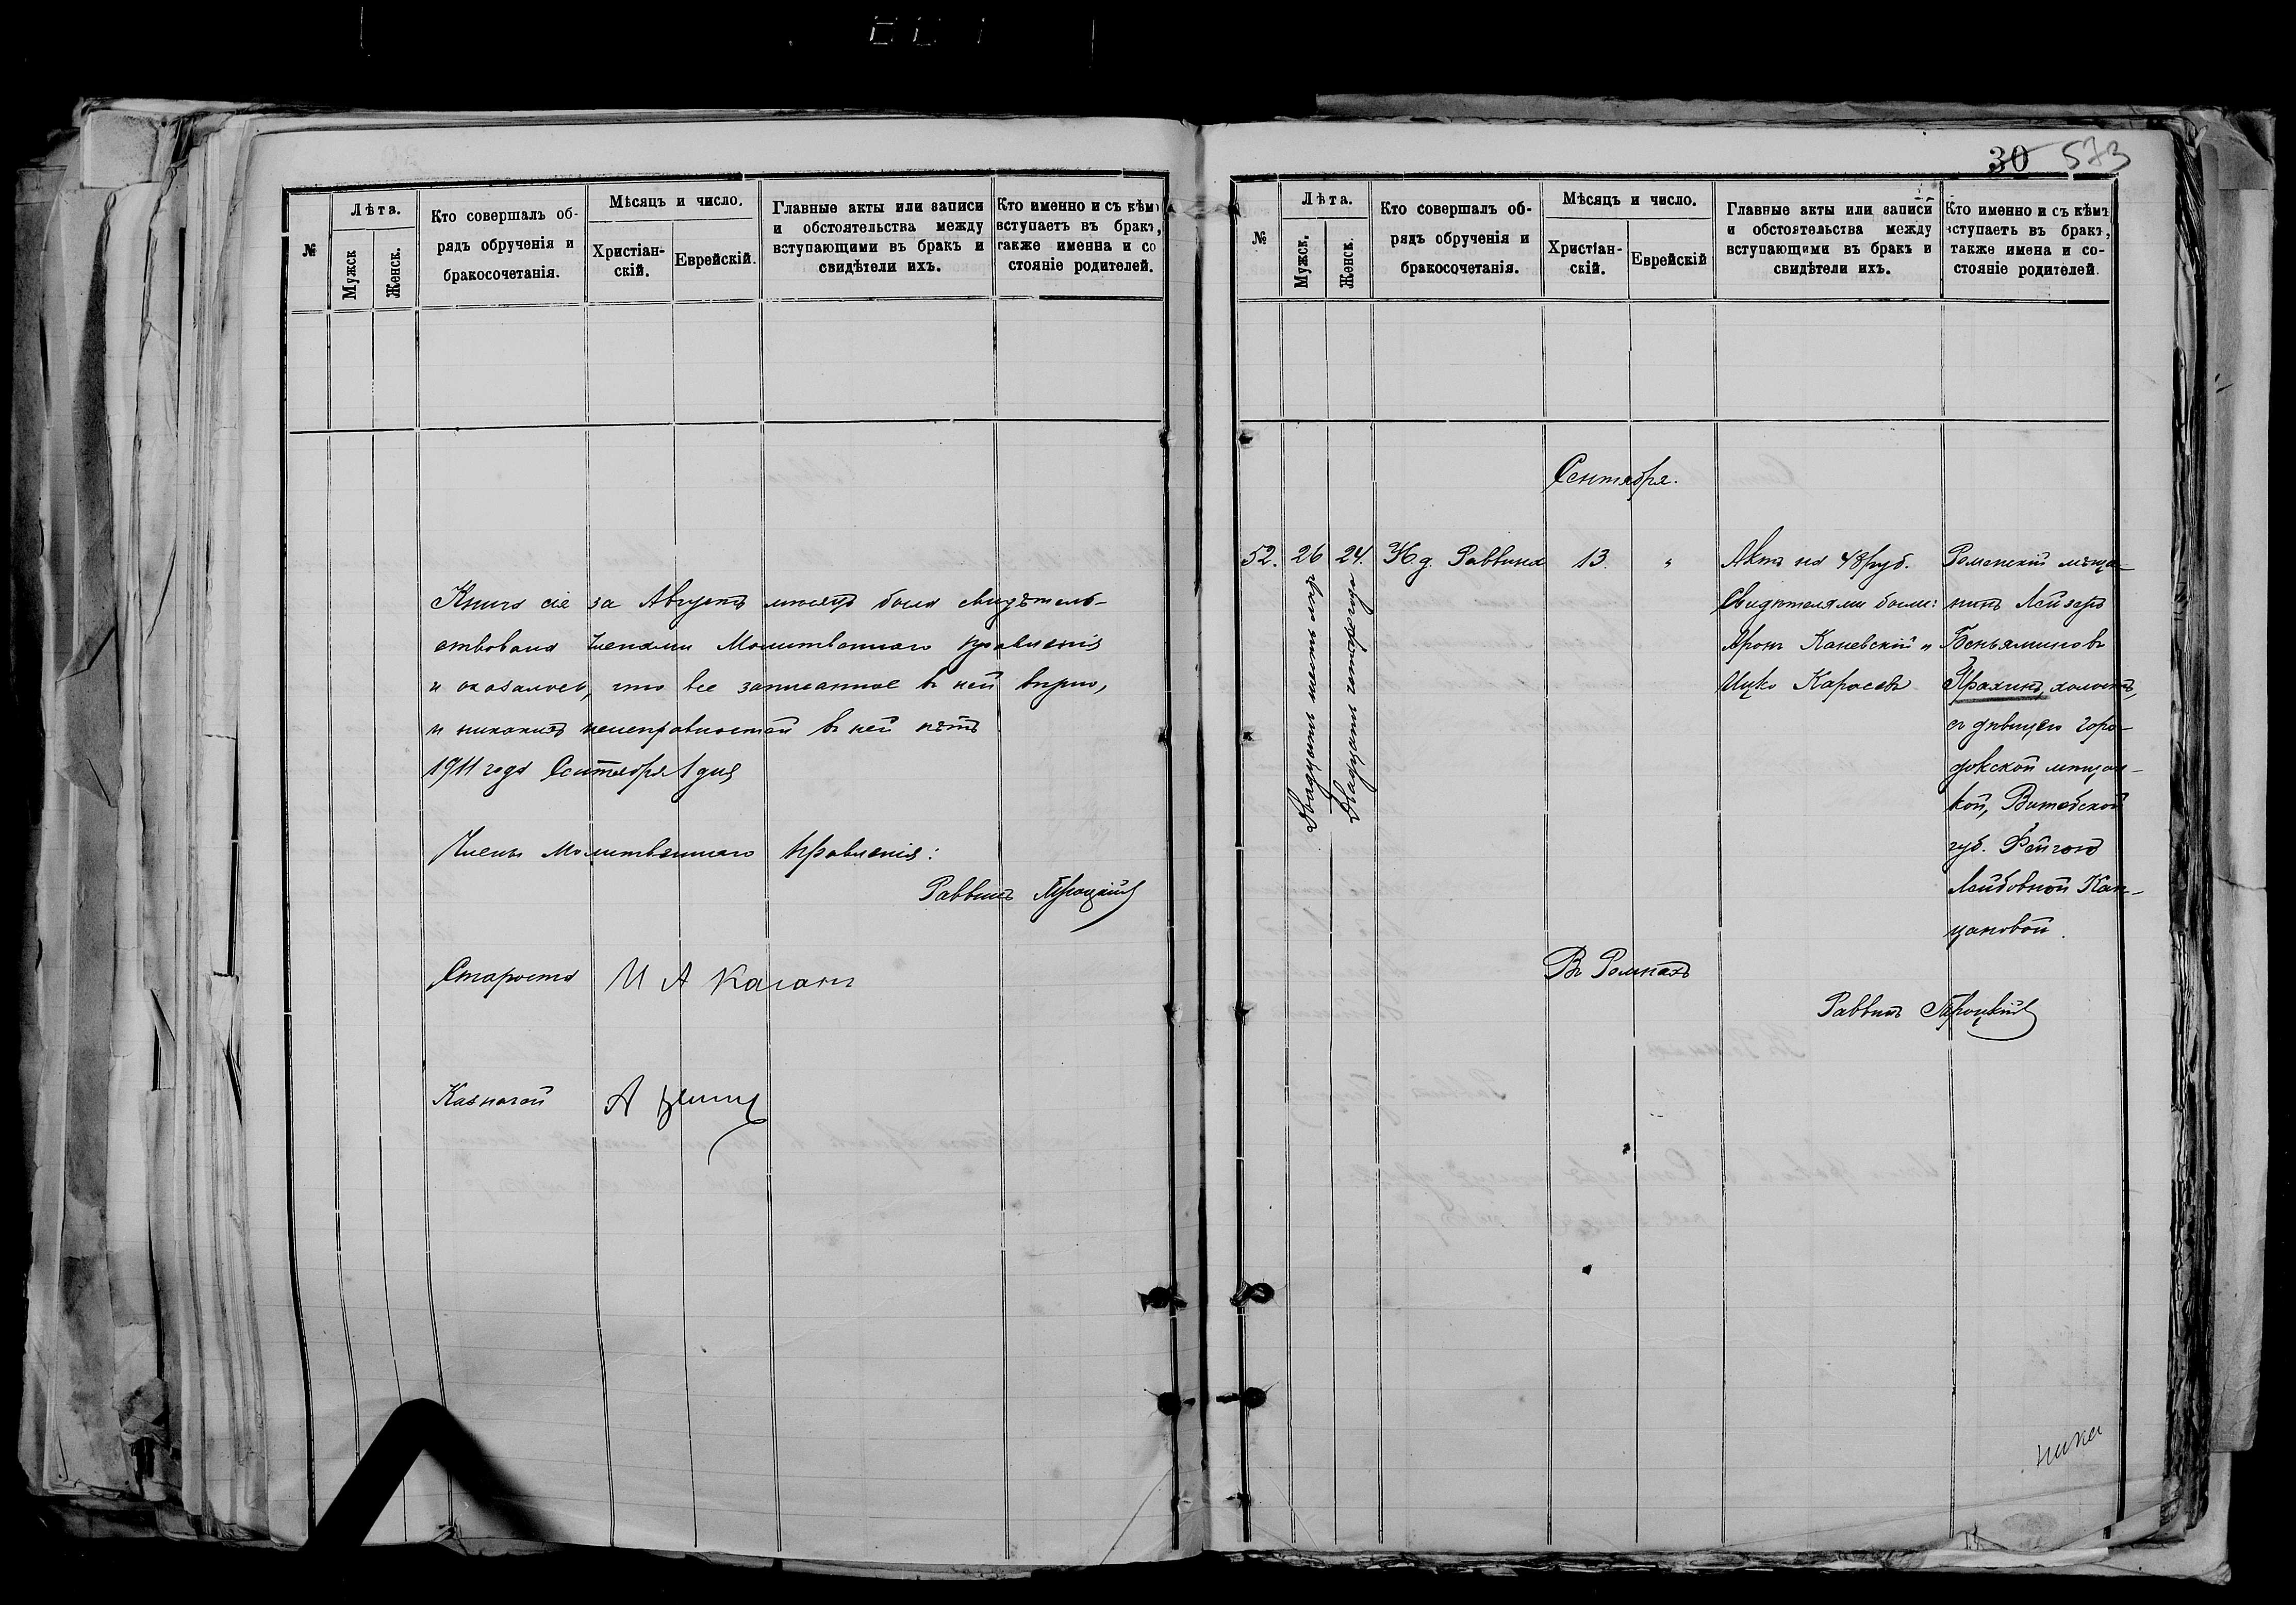 №
Лѣта.
Мужск
Женск.
Кто совершалъ об-
рядъ обрученія и
бракосочетанія.
Мѣсяцъ и число.
Христіан-
скій.
Еврейскій.
Главные акты или записи
и обстоятельства между
вступающими въ бракъ и
свидѣтели ихъ.
Кто именно и съ кѣмъ
вступаетъ въ бракъ,
также именна и со
стояніе родителей.
Книга сія за Августъ мѣсяцъ была свидѣтель-
ствована Членами Молитвеннаго правленія
и оказалось, что все записанное въ ней вѣрно,
и никакихъ неисправностей въ ней нѣтъ
1911 года Сентября 1 дня
Члены Молитвеннаго правленія:
Раввинъ Троцкій
Староста И А Каганъ
Казначей А
30 573
№
Лѣта.
Мужск.
Женск.
Кто совершалъ об-
рядъ обрученія и
бракосочетанія.
Мѣсяцъ и число.
Христіан-
скій.
Еврейскій
Главные акты или записи
и обстоятельства между
вступающими въ бракъ и
свидѣтели ихъ.
Кто именно и съ кѣмъ
вступаетъ въ бракъ,
также имена и со-
стояніе родителей.
Сентября.
52.
26
Двадцать шесть лѣтъ
24.
Двадцать четыре года
И. д. Раввина
13.
"
Актъ на 48 руб.
Свидѣтелями были:
Аронъ Каневскій и
Ицко Карасевъ
Роменскій мѣща-
нинъ Лейзеръ
Беньяминовъ
Храхинъ, холостъ,
съ дѣвицею Горо-
докской мѣщан-
кой, Витебской
губ. Фейгою
Лейбовной Кан-
цановой.
Въ Ромнахъ
Раввинъ Троцкій